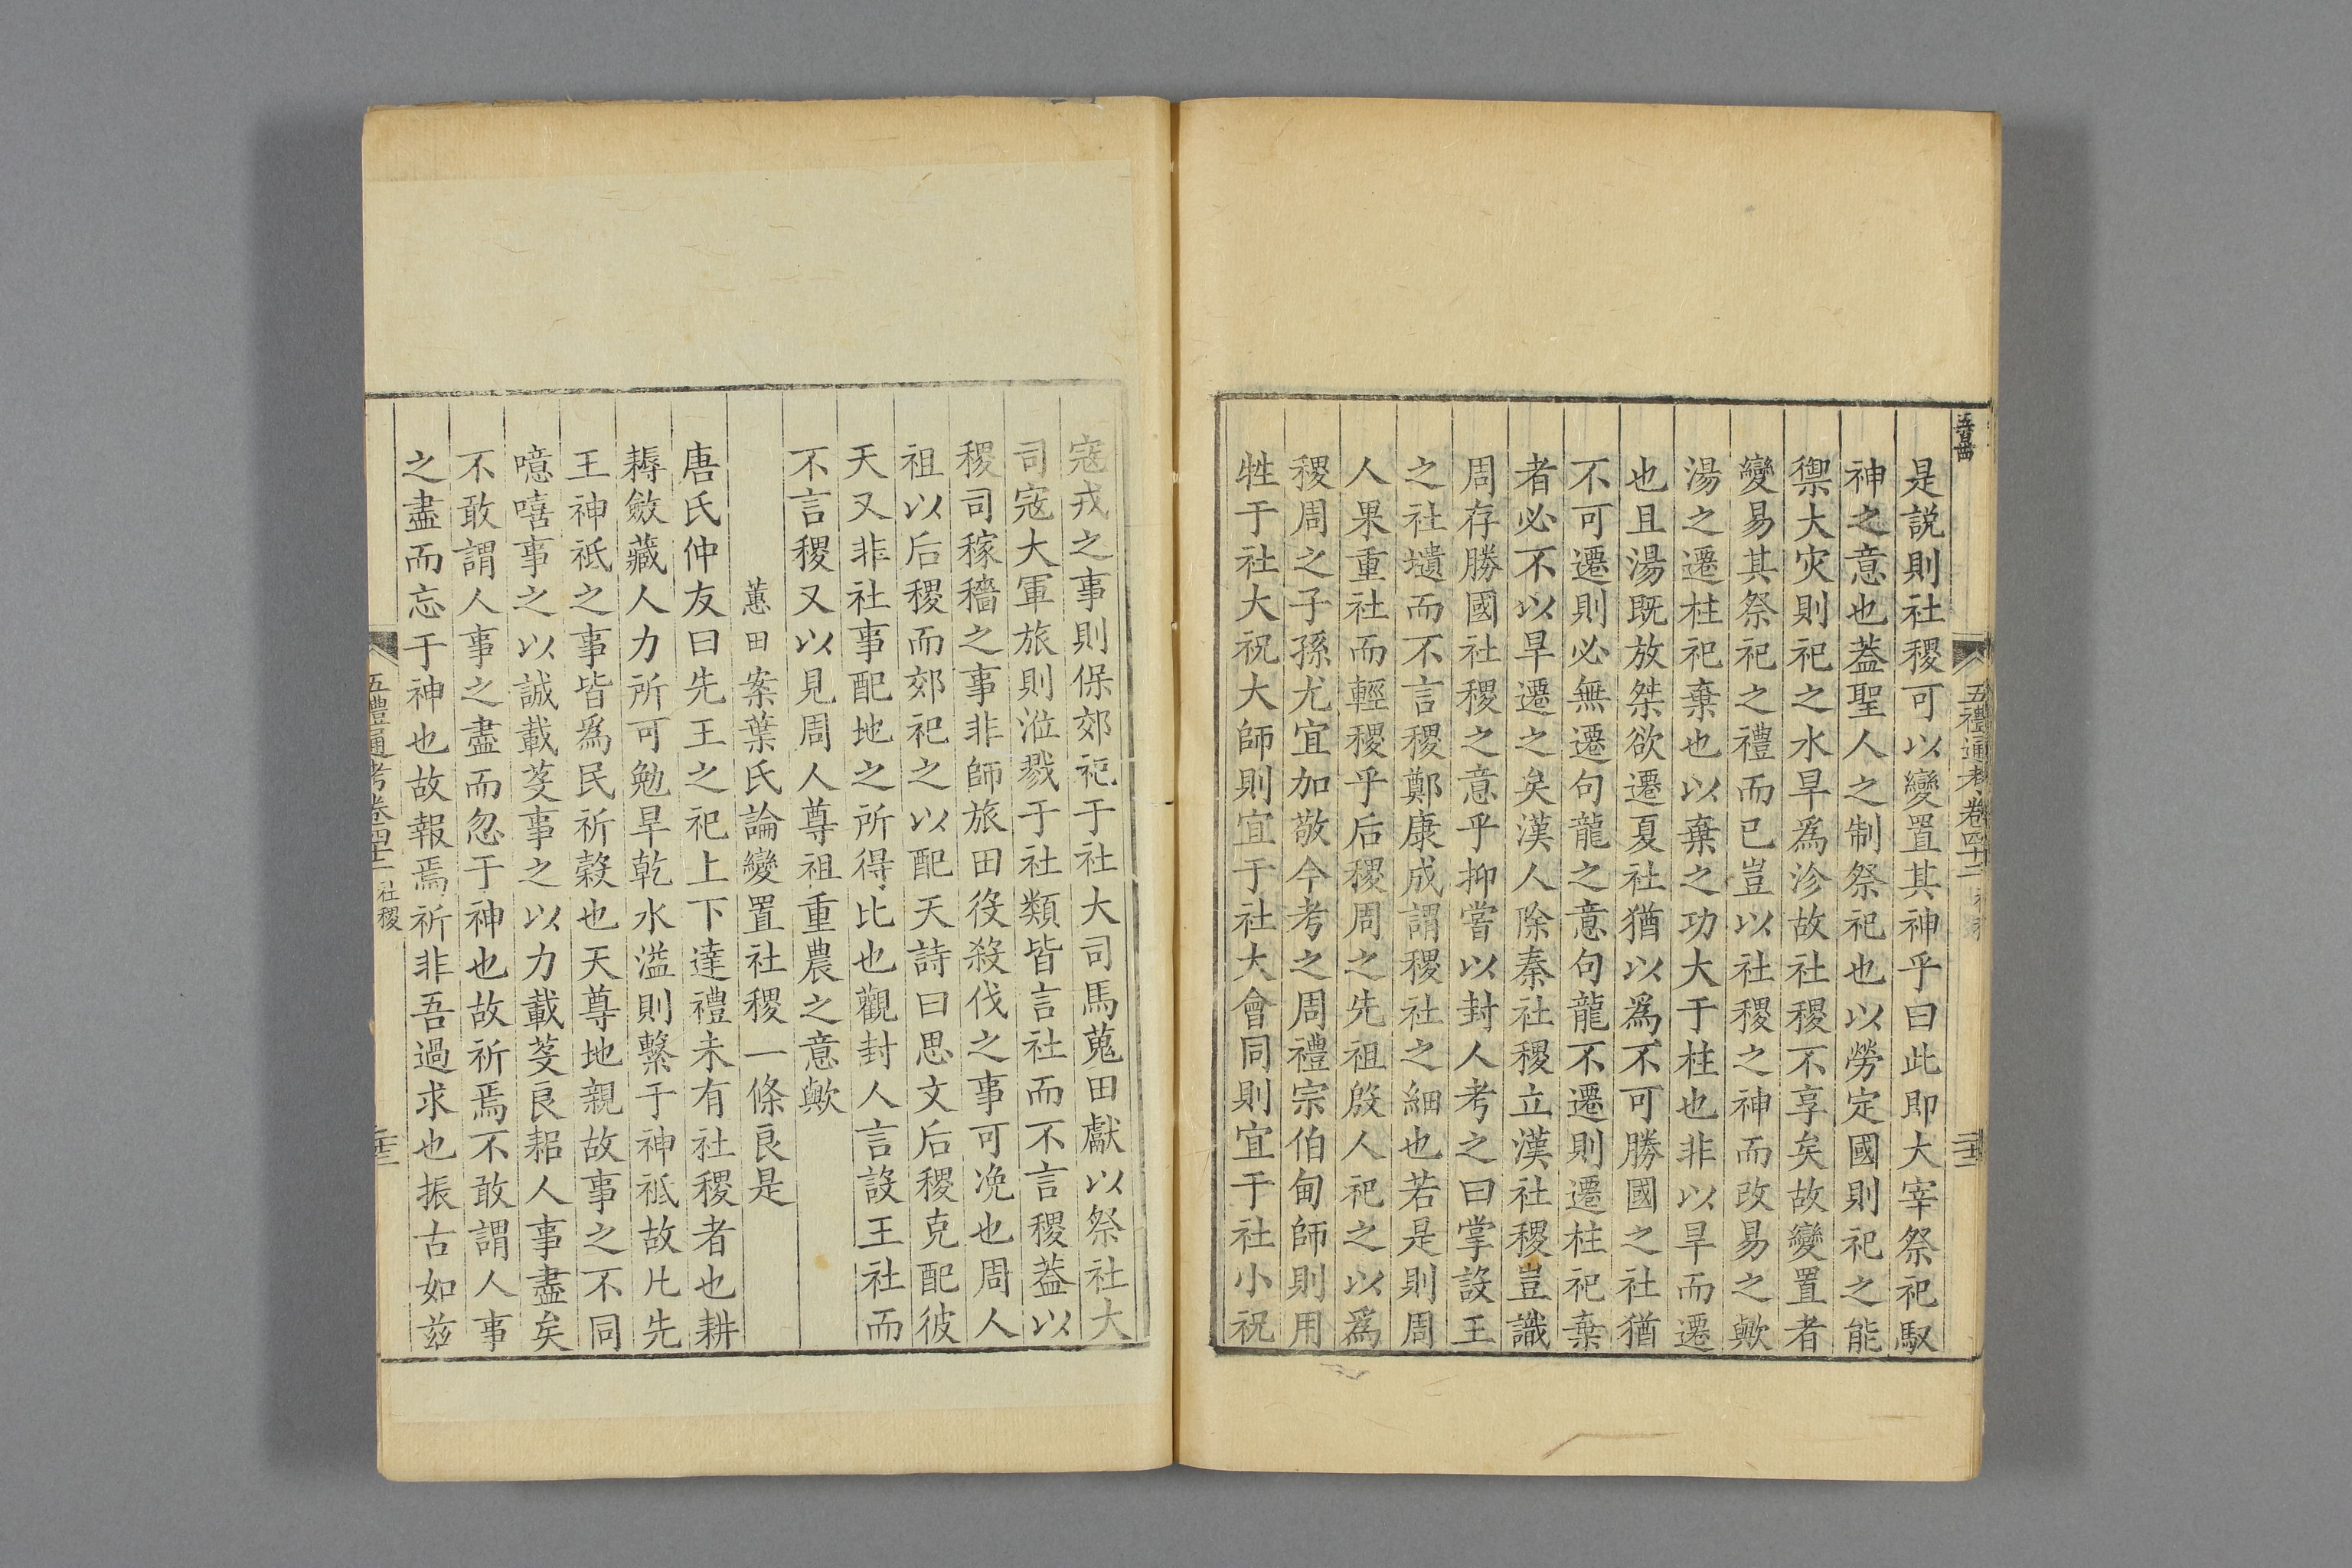 五禮通考卷四十二
是説則社稷可以變置其神乎曰此即大宰祭祀馭
神之意也葢聖人之制祭祀也以勞定國則祀之能
禦大灾則祀之水旱為沴故社稷不享矣故變置者
變易其祭祀之禮而已豈以社稷之神而改易之歟
湯之遷柱祀棄也以棄之功大于柱也非以旱而遷
也且湯既放桀欲遷夏社猶以為不可勝國之社猶
不可遷則必無遷句龍之意句龍不遷則遷柱祀棄
者必不以旱遷之矣漢人除秦社稷立漢社稷豈識
周存勝國社稷之意乎抑嘗以封人考之曰掌設王
之社壝而不言稷鄭康成謂稷社之細也若是則周
人果重社而輕稷乎后稷周之先祖殷人祀之以為
稷周之子孫尤宜加敬今考之周禮宗伯甸師則用
牲于社大祝大師則宜于社大會同則宜于社小祝
寇戎之事則保郊祀于社大司馬蒐田獻以祭社大
司寇大軍旅則涖戮于社類皆言社而不言稷葢以
稷司稼穡之事非師旅田役殺伐之事可凂也周人
祖以后稷而郊祀之以配天詩曰思文后稷克配彼
天又非社事配地之所得比也觀封人言設王社而
不言稷又以見周人尊祖重農之意歟
蕙田案葉氏論變置社稷一條良是
唐氏仲友曰先王之祀上下達禮未有社稷者也耕
耨斂藏人力所可勉旱乾水溢則繫于神祇故凡先
王神祇之事皆為民祈穀也天尊地親故事之不同
噫嘻事之以誠載芟事之以力載芟良耜人事盡矣
不敢謂人事之盡而忽于神也故祈焉不敢謂人事
之盡而忘于神也故報焉祈非吾過求也振古如兹
五禮通考卷四十二 社稷